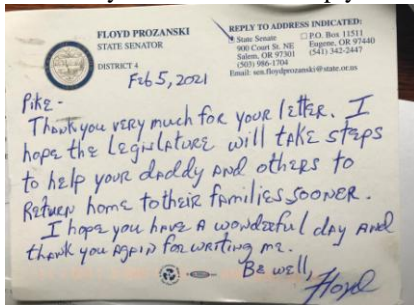 FLOYD PROZANSKI
STATE SENATOR
DISTRICT 4
REPLY TO ADDRESS INDICATED:
State Senate
900 Court St. NE
Salem, OR 97301
(503) 986-1704
P.O. Box 11511
Eugene, OR 97440
(541) 342-2447
Email: sen.floydprozanski@state.or.us
Feb 5, 2021
Pike-
Thank you very much for your letter. I
hope the Legislature will take steps
to help your daddy and others to
Return home to their families sooner.
I hope you have a wonderful day and
thank you again for writing me.
Be well,
Floyd